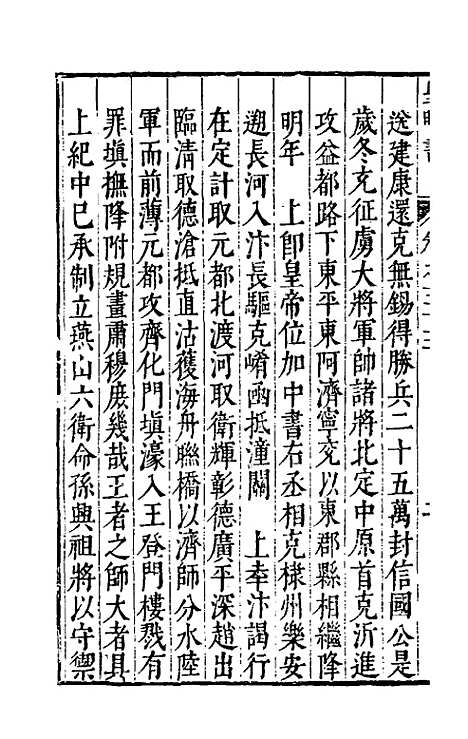 送建康還克無錫得勝兵二十五萬封信國公是
歲冬充征虜大將軍帥諸將北定中原首克沂進
攻益都路下東平東阿濟寧兗以東郡縣相繼降
明年　上卽皇帝位加中書右丞相克棣州樂安
遡長河入汴長驅克崤函抵潼關　上幸汴謁行
在定計取元都北渡河取衛輝彰德廣平深趙出
臨清取德滄抵直沽獲海舟聯橋以濟師分水陸
軍而前薄元都攻齊化門塡濠入王登門樓戮有
罪塡撫降附規畫肅穆庶幾哉王者之師大者具
上紀中已承制立燕山六衛命孫興祖將以守禦